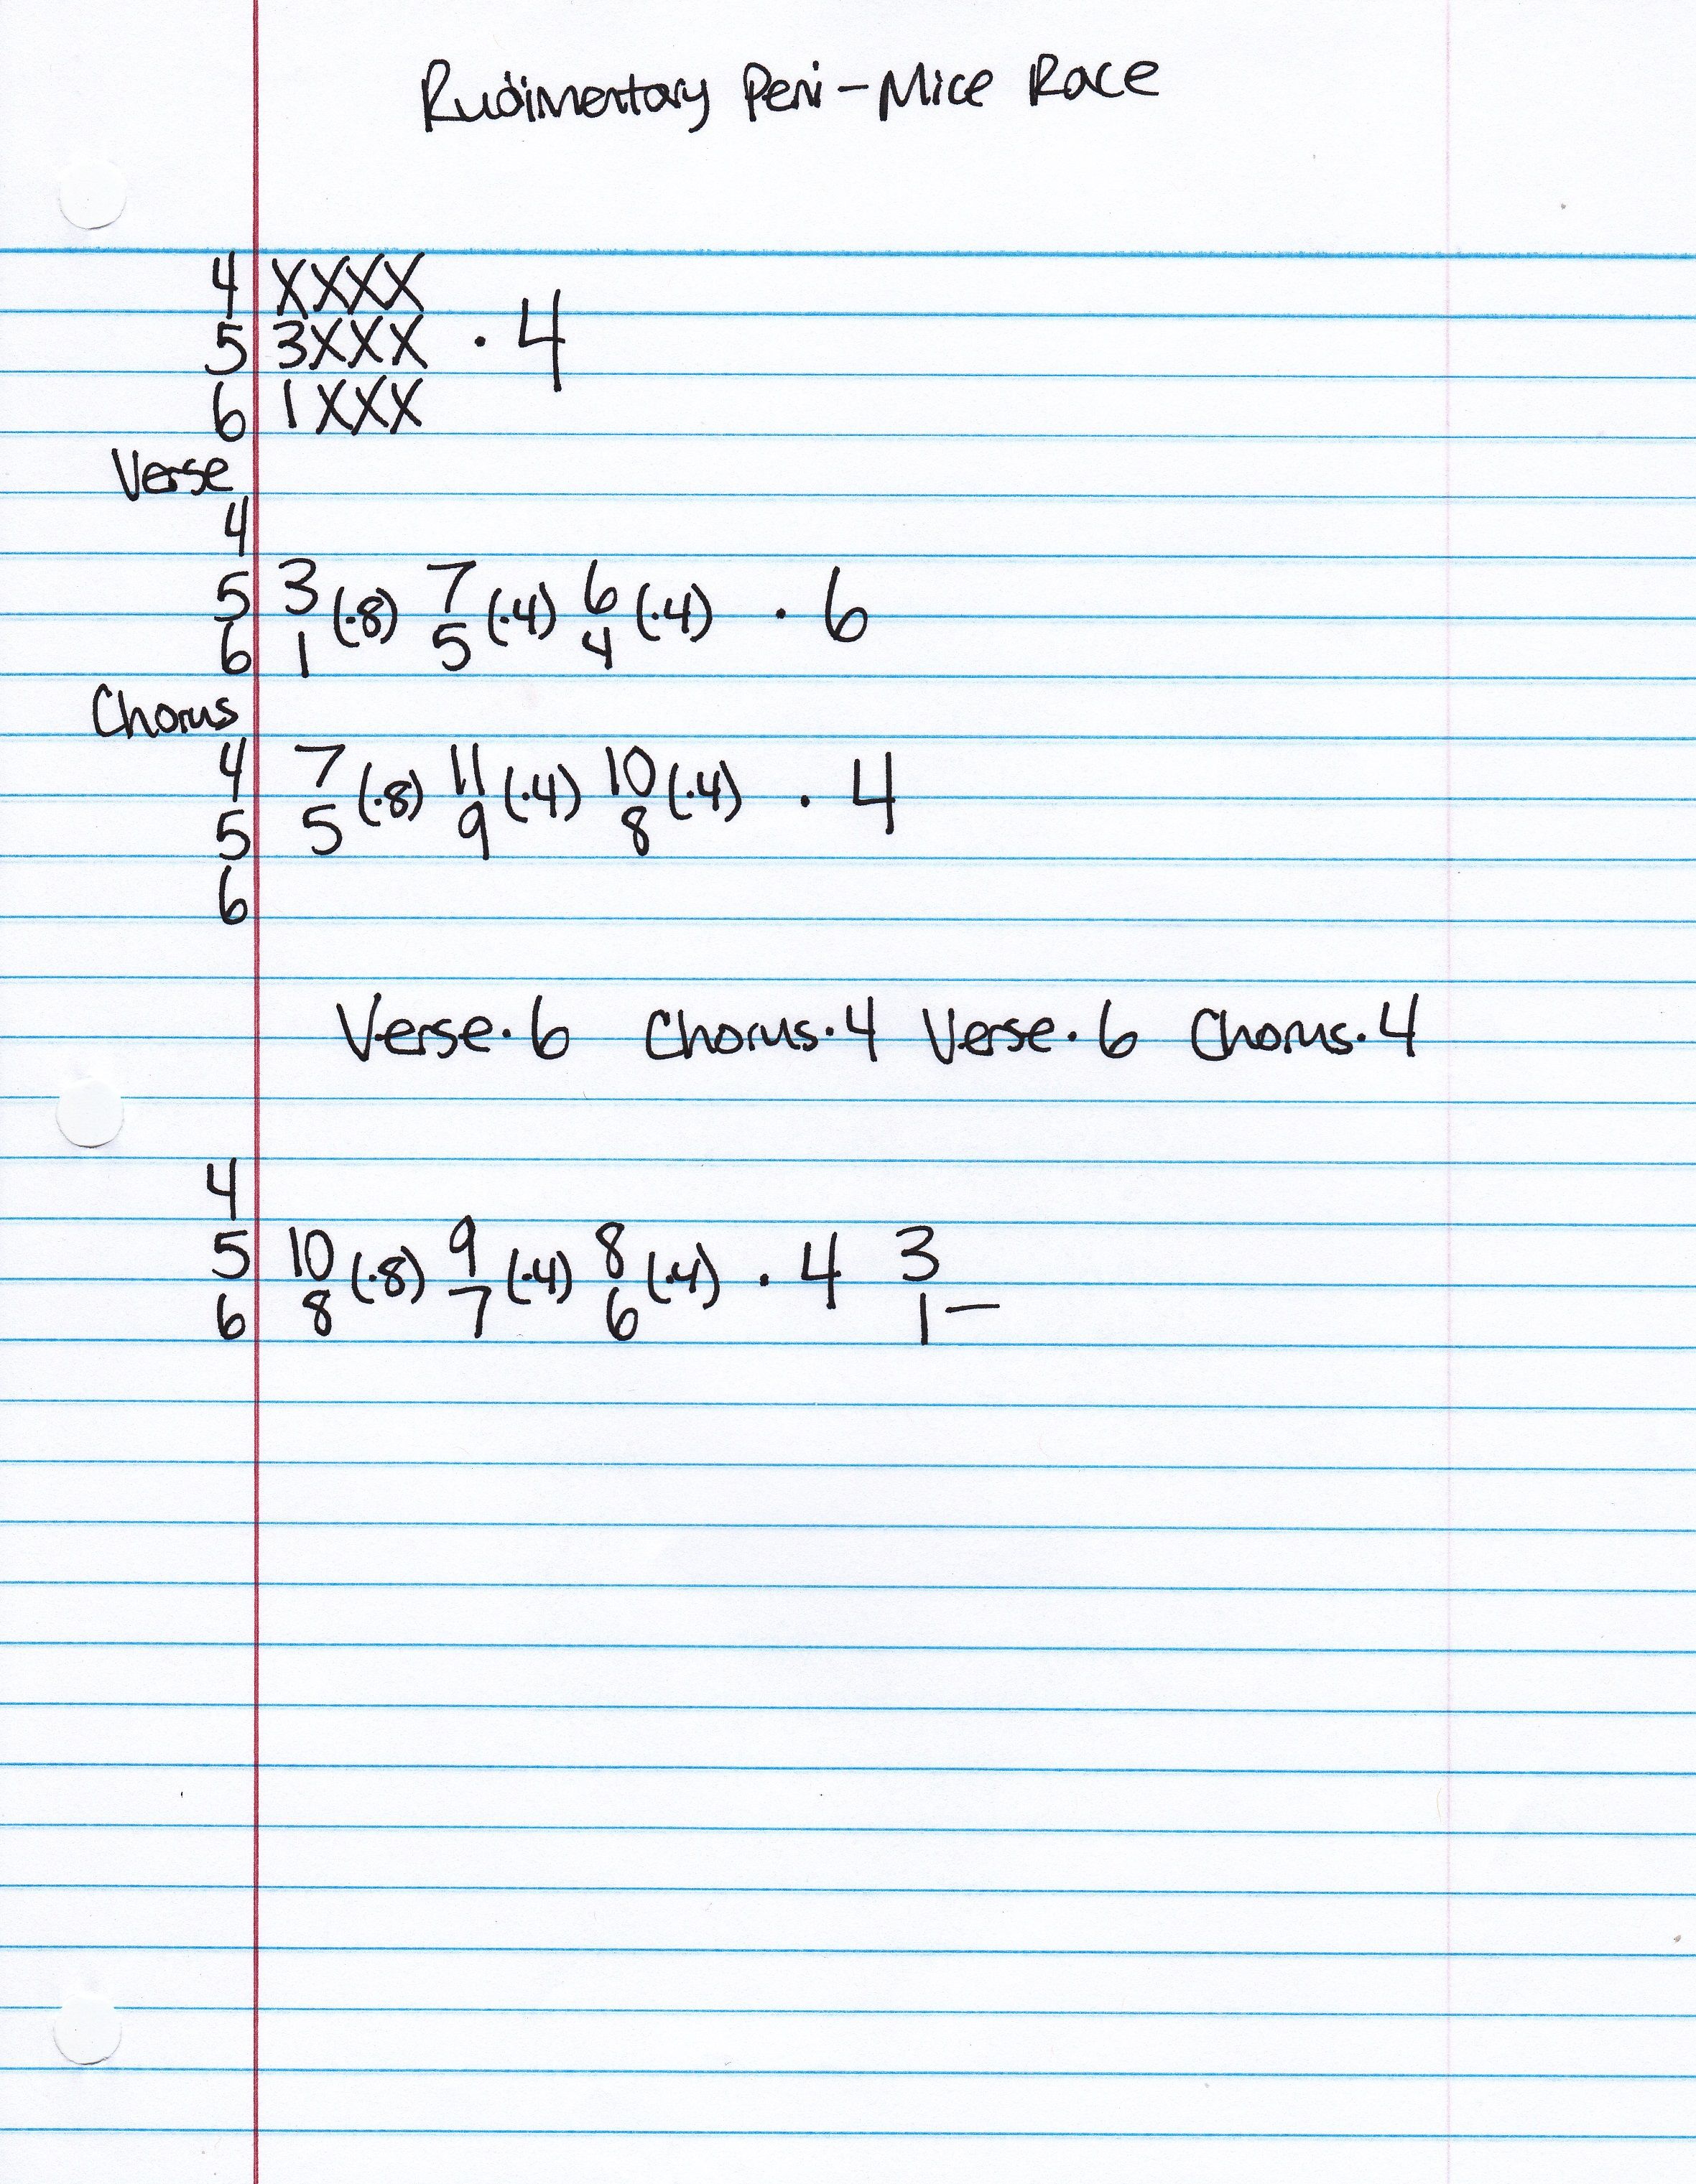 Rudimentary Peni - Mice Race
4 XXXX
5 3XXX · 4
6 1XXX
Verse
4
5 3 (·8) 7 (·4) 6 (·4) · 6
6 1 5 4
Chorus
4 7 (·8) 11 (·4) 10 (·4) · 4
5 5 9 8
6
Verse · 6 Chorus · 4 Verse · 6 Chorus · 4
4
5 10 (·8) 9 (·4) 8 (·4) · 4 3
6 8 7 6 1 —